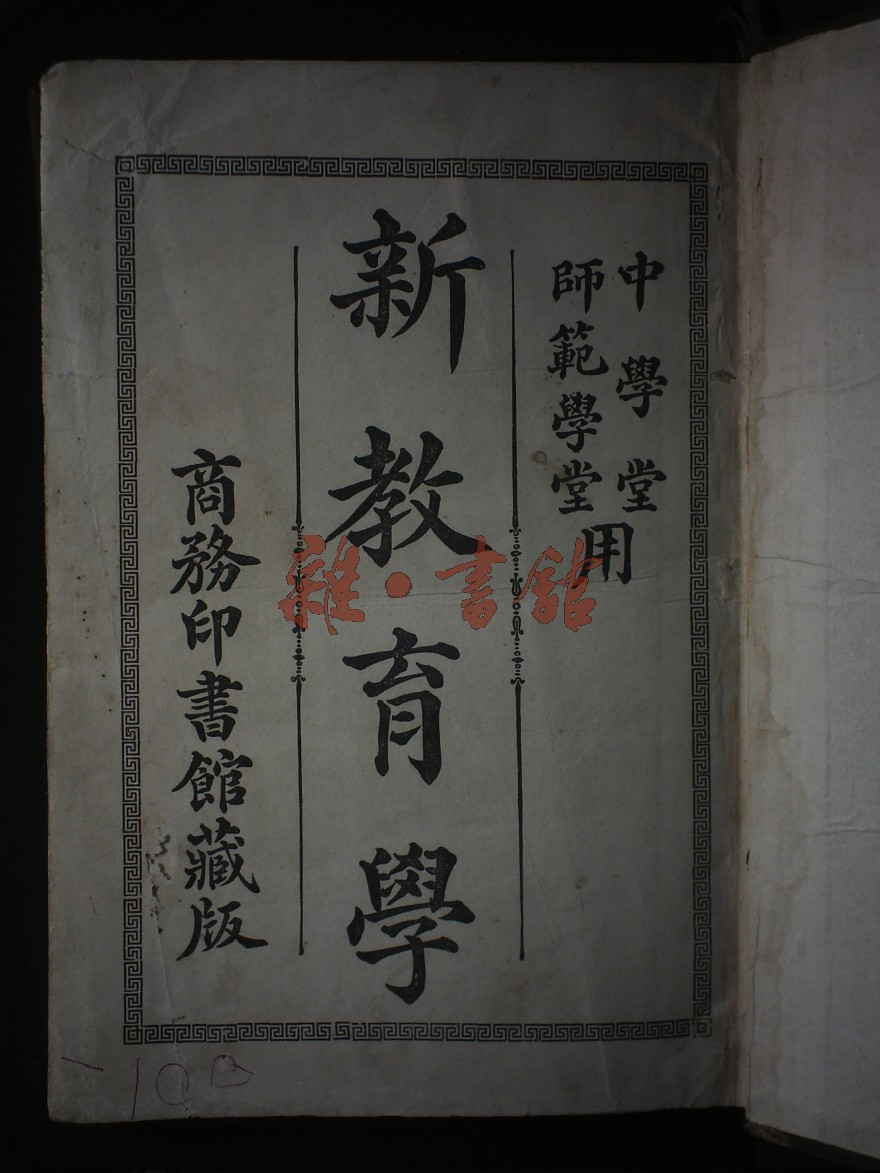 中學堂
師範學堂
用
新教育學
商務印書館藏版
雜·書館
10